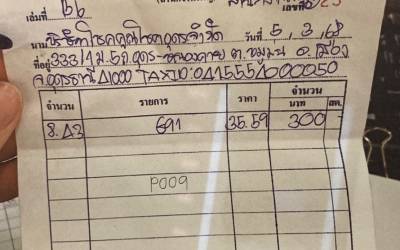 เล่มที่ bb
เลขที่ 23
นาม บริษัทโชคคูณโชคอุดรจำกัด วันที่ 5, 3, 68
ที่อยู่ 333/1 ม.5 ถ.อุดร-หนองคาย ต.หมูม่น อ.เมือง
จ.อุดรธานี 41000 TAXID: 0415554000050
จำนวน รายการ ราคา จำนวน
บาท สต.
8.43 G91 35.59 300
P009